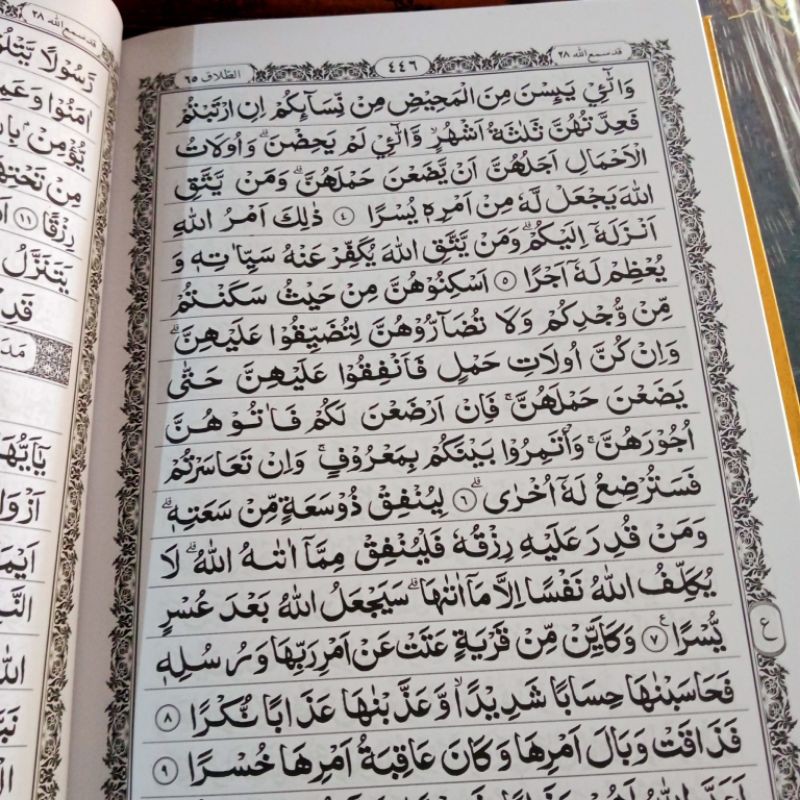 قد سمع الله ٢٨
٤٤٦
الطلاق ٦٥
وَالّٰۤـِٔيْ يَىِٕسْنَ مِنَ الْمَحِيْضِ مِنْ نِّسَاۤىِٕكُمْ اِنِ ارْتَبْتُمْ
فَعِدَّتُهُنَّ ثَلٰثَةُ اَشْهُرٍ وَّالّٰۤـِٔيْ لَمْ يَحِضْنَۗ وَاُولَاتُ
الْاَحْمَالِ اَجَلُهُنَّ اَنْ يَّضَعْنَ حَمْلَهُنَّۗ وَمَنْ يَّتَّقِ
اللّٰهَ يَجْعَلْ لَّهٗ مِنْ اَمْرِهٖ يُسْرًا ٤ ذٰلِكَ اَمْرُ اللّٰهِ
اَنْزَلَهٗٓ اِلَيْكُمْۗ وَمَنْ يَّتَّقِ اللّٰهَ يُكَفِّرْ عَنْهُ سَيِّاٰتِهٖ وَ
يُعْظِمْ لَهٗٓ اَجْرًا ٥ اَسْكِنُوْهُنَّ مِنْ حَيْثُ سَكَنْتُمْ
مِّنْ وُّجْدِكُمْ وَلَا تُضَاۤرُّوْهُنَّ لِتُضَيِّقُوْا عَلَيْهِنَّۗ
وَاِنْ كُنَّ اُولَاتِ حَمْلٍ فَاَنْفِقُوْا عَلَيْهِنَّ حَتّٰى
يَضَعْنَ حَمْلَهُنَّۚ فَاِنْ اَرْضَعْنَ لَكُمْ فَاٰتُوْهُنَّ
اُجُوْرَهُنَّۚ وَأْتَمِرُوْا بَيْنَكُمْ بِمَعْرُوْفٍۚ وَاِنْ تَعَاسَرْتُمْ
فَسَتُرْضِعُ لَهٗٓ اُخْرٰىۗ ٦ لِيُنْفِقْ ذُوْ سَعَةٍ مِّنْ سَعَتِهٖۗ
وَمَنْ قُدِرَ عَلَيْهِ رِزْقُهٗ فَلْيُنْفِقْ مِمَّآ اٰتٰىهُ اللّٰهُۗ لَا
يُكَلِّفُ اللّٰهُ نَفْسًا اِلَّا مَآ اٰتٰىهَاۗ سَيَجْعَلُ اللّٰهُ بَعْدَ عُسْرٍ
يُّسْرًا ٧ وَكَاَيِّنْ مِّنْ قَرْيَةٍ عَتَتْ عَنْ اَمْرِ رَبِّهَا وَرُسُلِهٖ
ع
فَحَاسَبْنٰهَا حِسَابًا شَدِيْدًاۙ وَّعَذَّبْنٰهَا عَذَابًا نُّكْرًا ٨
فَذَاقَتْ وَبَالَ اَمْرِهَا وَكَانَ عَاقِبَةُ اَمْرِهَا خُسْرًا ٩
قد سمع الله ٢٨
رَسُوْلًا
اٰمَنُوْا
يُؤْمِنْ
مِنْ تَحْتِهَا
رِزْقًا ١١
يَتَنَزَّلُ